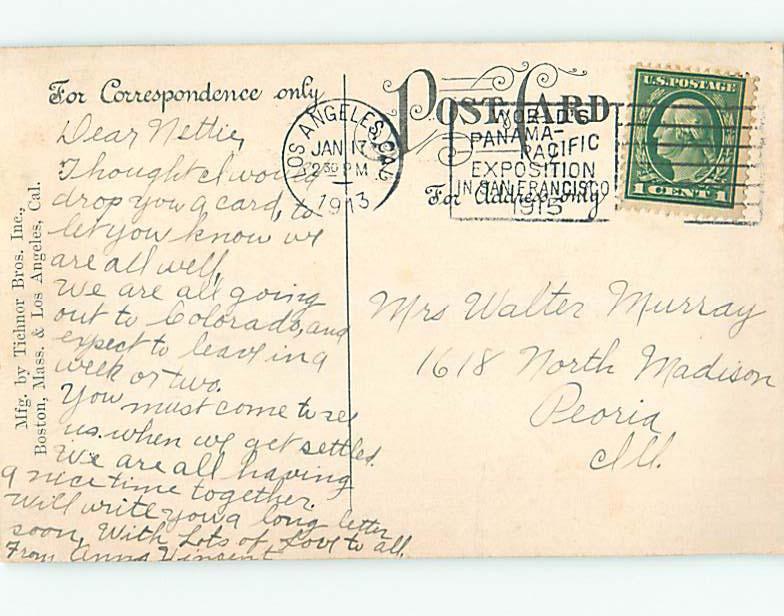 For Correspondence only
POST CARD
For Address only
U.S. POSTAGE
1 CENT 1
LOS ANGELES, CAL.
JAN 17
2 30 PM
1913
WORLD'S
PANAMA-
PACIFIC
EXPOSITION
IN SAN FRANCISCO
1915
Mfg. by Tichnor Bros. Inc.,
Boston, Mass. & Los Angeles, Cal.
Dear Nettie,
Thought I would
drop you a card, to
let you know we
are all well,
We are all going
out to Colorado, and
expect to leave in a
week or two.
You must come to see
us. when we get settled.
We are all having
a nice time together.
Will write you a long letter
soon, With Lots of Love to all,
From Anna Vincent
Mrs Walter Murray
1618 North Madison
Peoria
Ill.